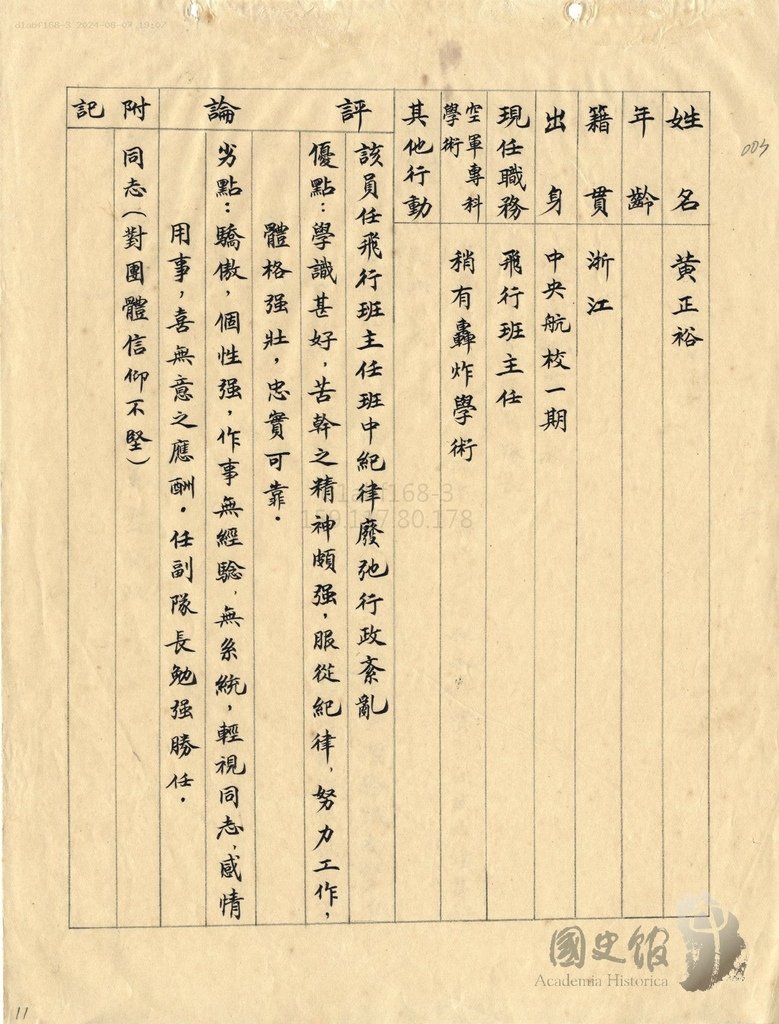 d1obf168-3 2024-08-07 19:07
003
姓名 黄正裕
年齡
籍貫 浙江
出身 中央航校一期
現任職務 飛行班主任
空軍專科學術 稍有轟炸學術
其他行動
評論
該員任飛行班主任班中紀律廢弛行政紊亂
優點：學識甚好，苦幹之精神頗强，服從紀律、努力工作，
體格强壯，忠實可靠．
劣點：驕傲，個性强，作事無經驗、無系統，輕視同志、感情
用事，喜無意之應酬．任副隊長勉强勝任．
附記
同志（對團體信仰不堅）
國史館
Academia Historica
11